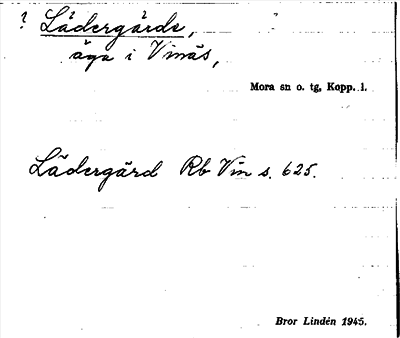 ? Lädergårds,
äga i Vinäs,
Mora sn o. tg, Kopp. l.
Lädergård Rb Vin s. 625.
Bror Lindén 1945.